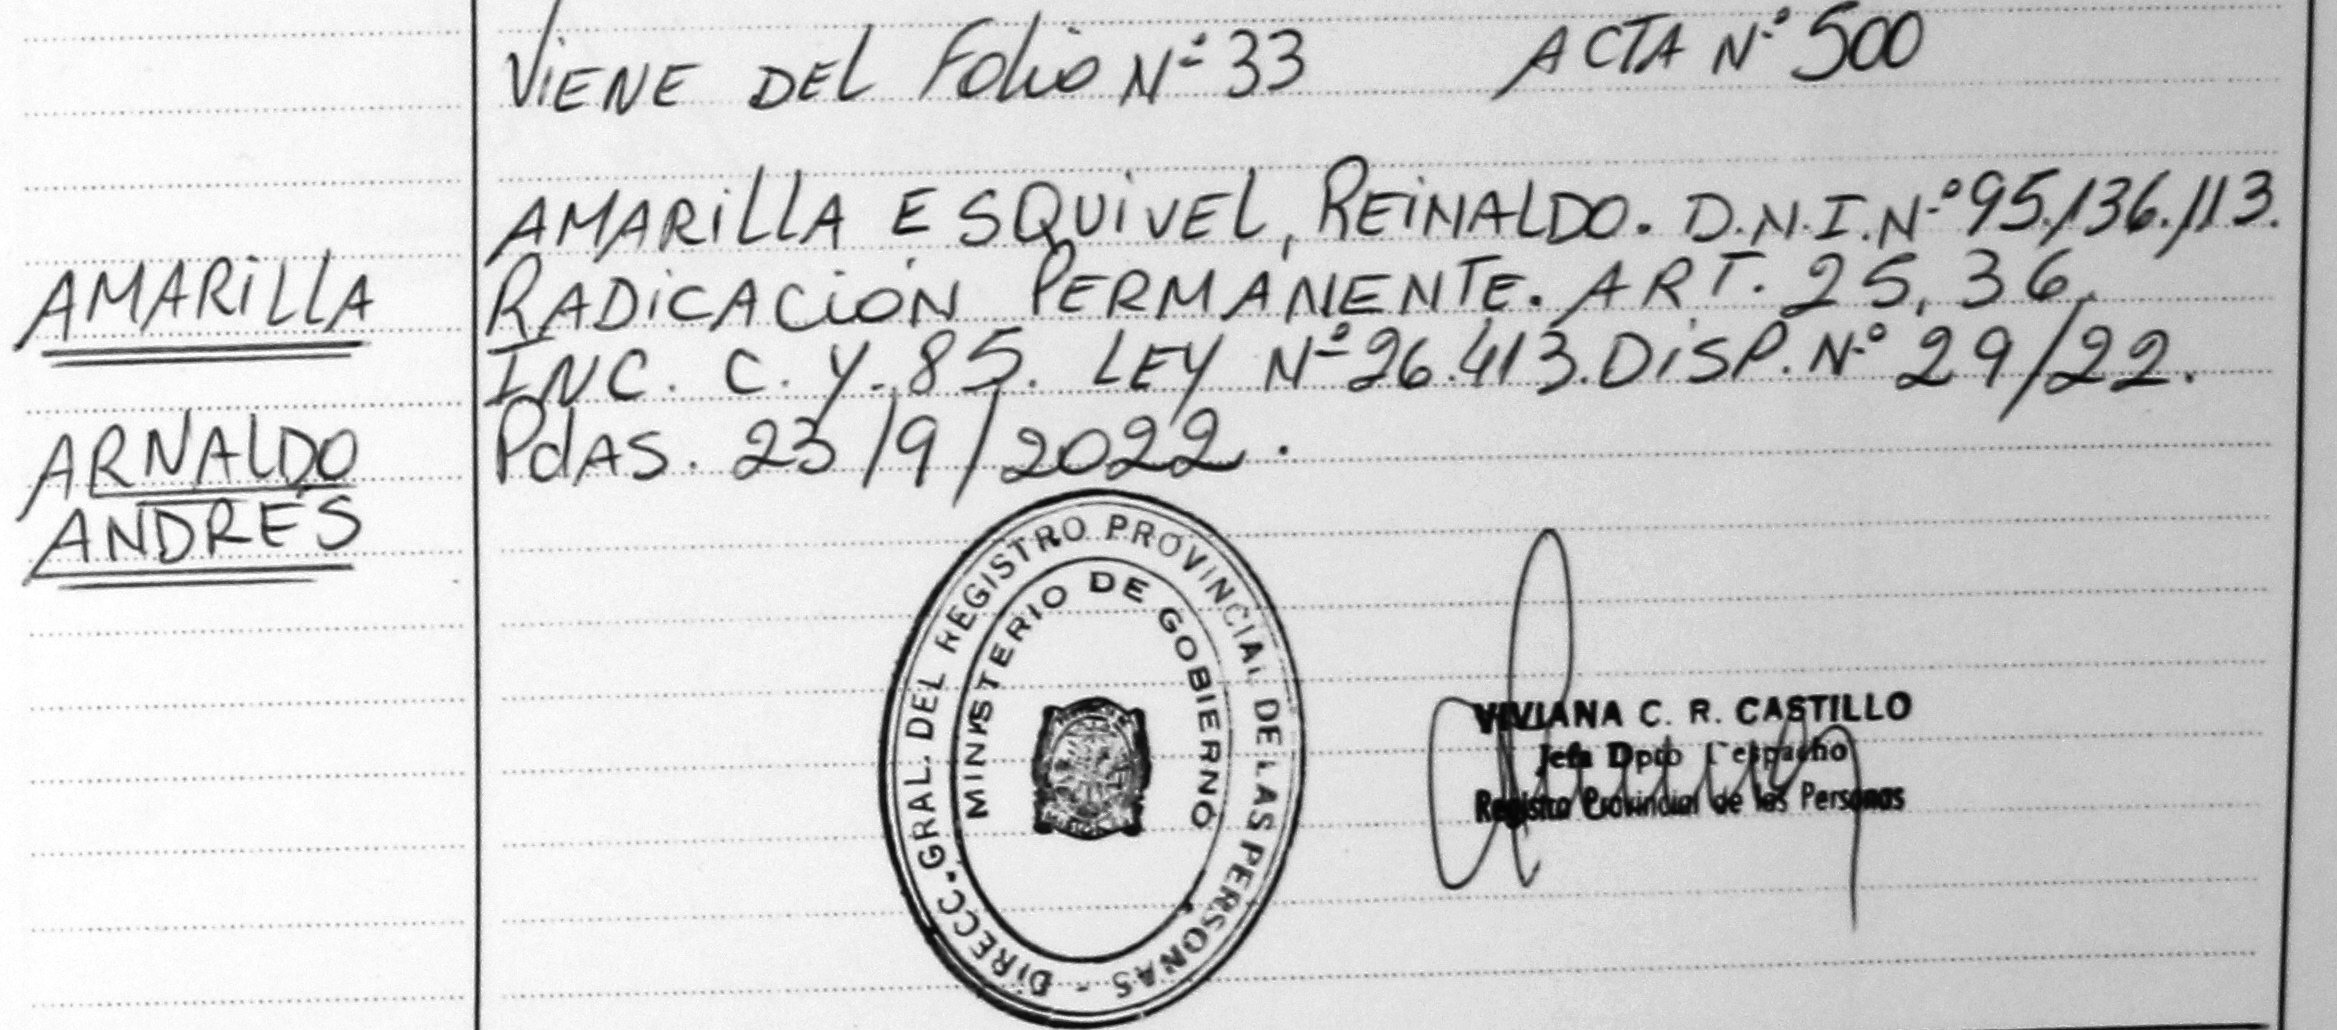 Viene del Folio N° 33 Acta N° 500
AMARILLA ESQUIVEL, REINALDO. D.N.I. N° 95.136.113.
RADICACIÓN PERMANENTE. ART. 25, 36,
INC. C. Y. 85. LEY N° 26.413. DISP. N° 29/22.
Pdas. 23/9/2022.
AMARILLA
ARNALDO
ANDRÉS
DIRECC. GRAL. DEL REGISTRO PROVINCIAL DE LAS PERSONAS -
MINISTERIO DE GOBIERNO
VIVIANA C. R. CASTILLO
Jefa Dpto Despacho
Registro Provincial de las Personas